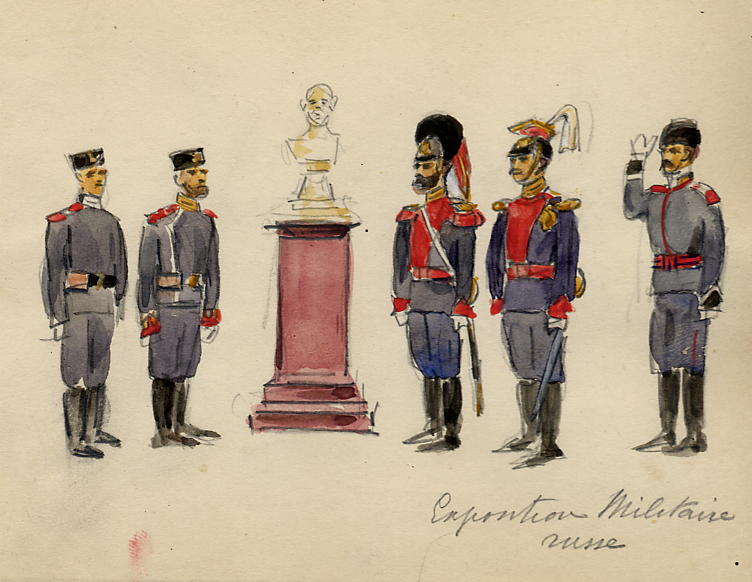 Exposition Militaire
russe